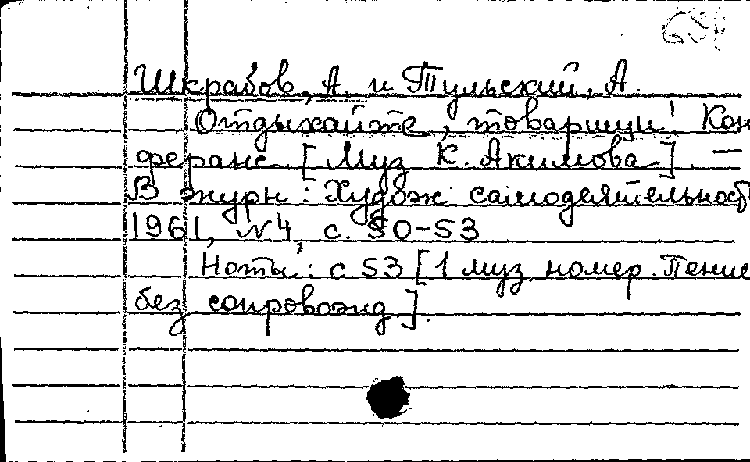 Шкрабов, А. и Тульский, А.
Отдыхайте, товарищи! Кон
феранс. [Муз К. Акимова]. —
В журн: Худож самодеятельность
1961, №4, с. 50-53
Ноты: с 53 [1 муз номер. Пение
без сопровожд].